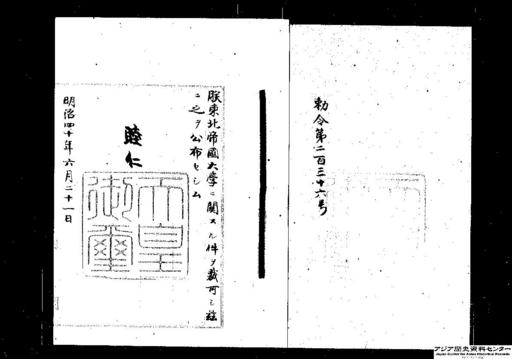 勅令第二百三十六号
朕東北帝國大學ニ関スル件ヲ裁可シ茲
ニ之ヲ公布セシム
睦仁
天皇
御璽
明治四十年六月二十一日
アジア歴史資料センター
Japan Center for Asian Historical Records